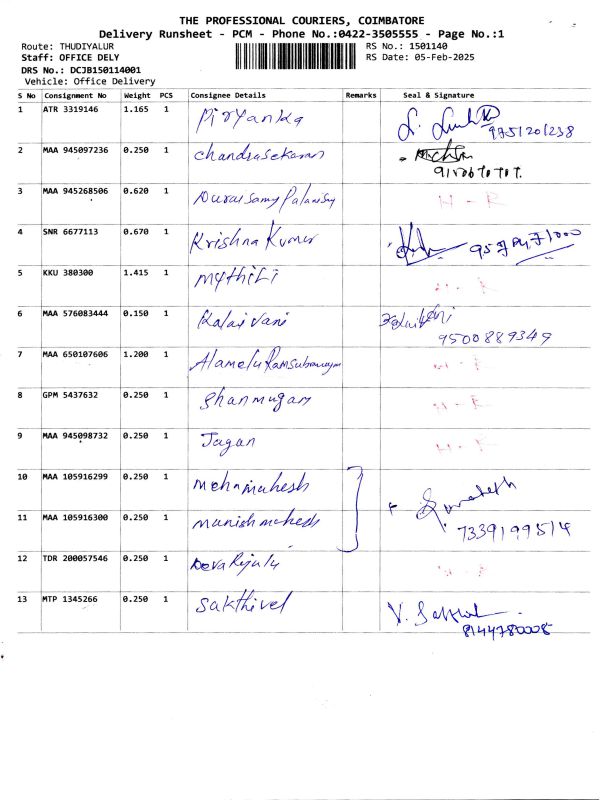 THE PROFESSIONAL COURIERS, COIMBATORE
Delivery Runsheet - PCM - Phone No.:0422-3505555 - Page No.:1
Route: THUDIYALUR RS No.: 1501140
Staff: OFFICE DELY RS Date: 05-Feb-2025
DRS No.: DCJB150114001
Vehicle: Office Delivery
S No Consignment No Weight PCS Consignee Details Remarks Seal & Signature
1 ATR 3319146 1.165 1 Piryanka
9751201238
2 MAA 945097236 0.250 1 chandrasekaran
3 MAA 945268506 0.620 1 Duraisamy Palanisy N - R
4 SNR 6677113 0.670 1 Krishna Kumar
5 KKU 380300 1.415 1 mythili R
6 MAA 576083444 0.150 1 Kalaivani
9500889349
7 MAA 650107606 1.200 1 Alamelu
8 GPM 5437632 0.250 1 Shanmugam N - R
9 MAA 945098732 0.250 1 Jagan N - R
10 MAA 105916299 0.250 1 mehamahesh
11 MAA 105916300 0.250 1 manishmahesh
7339199514
12 TDR 200057546 0.250 1 N - R
13 MTP 1345266 0.250 1 Sakthivel V.
8144780008